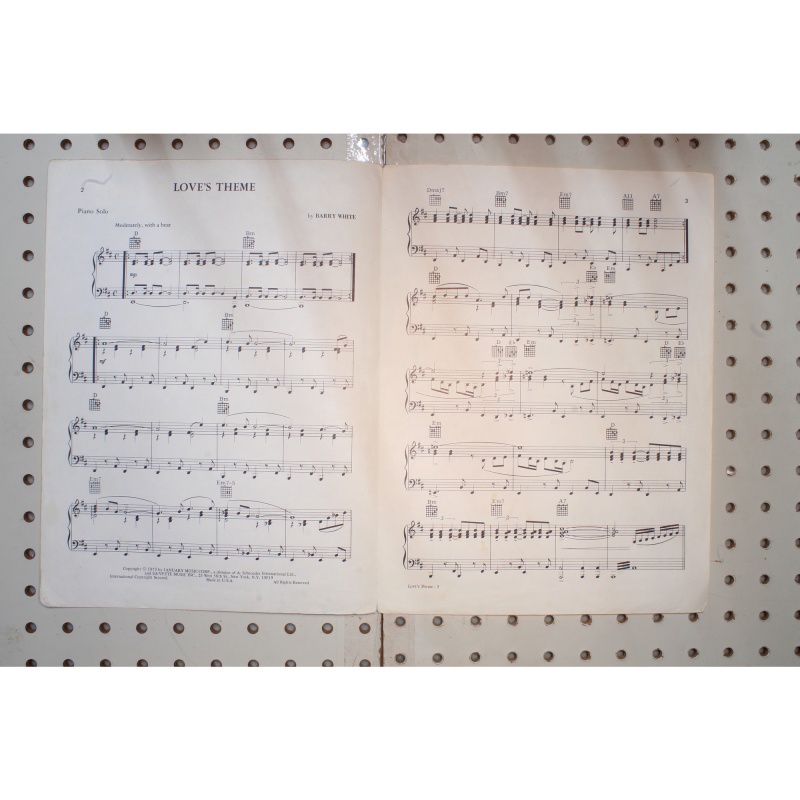 2
LOVE'S THEME
Piano Solo
by BARRY WHITE
Moderately, with a beat
D Bm
mp
D Bm
mf
D Bm
Em7 Em7-5
Copyright © 1973 by JANUARY MUSIC CORP., a division of A. Schroeder International Ltd.,
and SA-VETTE MUSIC INC., 25 West 56th St., New York, N.Y. 10019
International Copyright Secured Made in U.S.A. All Rights Reserved
3
Dmaj7 Bm7 Em7 A11 A7
D Em
3
3
D Em
3
Bm D
3
Bm Em7 A7
3 3
Love's Theme - 2